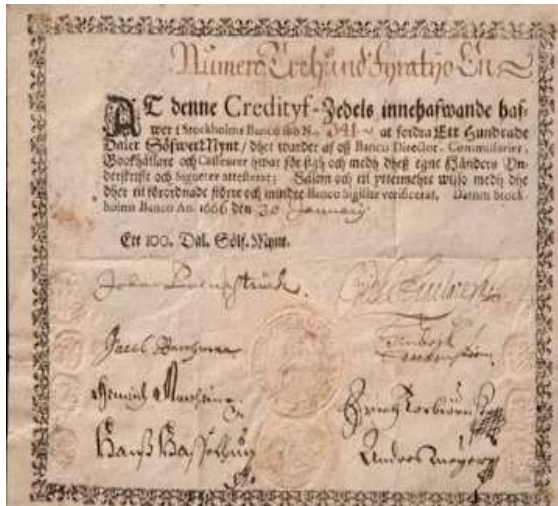 Numero Trehund Fyratijo En
AT denne Credityf-Zedels innehafwande haf-
wer i Stockholms Banco sub N.o 341 at fordra Ett Hundrade
Daler SölfwerMynt / dhet warder af oß Banco Director, Commissarier,
Bookhållare och Casseurer hwar för sigh och medh dheß egne Händers Vn-
derskrifft och Signeter attesterat; Såsom och til yttermehre wisso medh dhe
dhet til förordnade större och mindre Banco Sigiller verificerat. Datum Stock-
holm Banco An. 1666 den 30 January
Ett 100. Dal. Sölf. Mynt.
Johan
Jacob
Hans
Anders